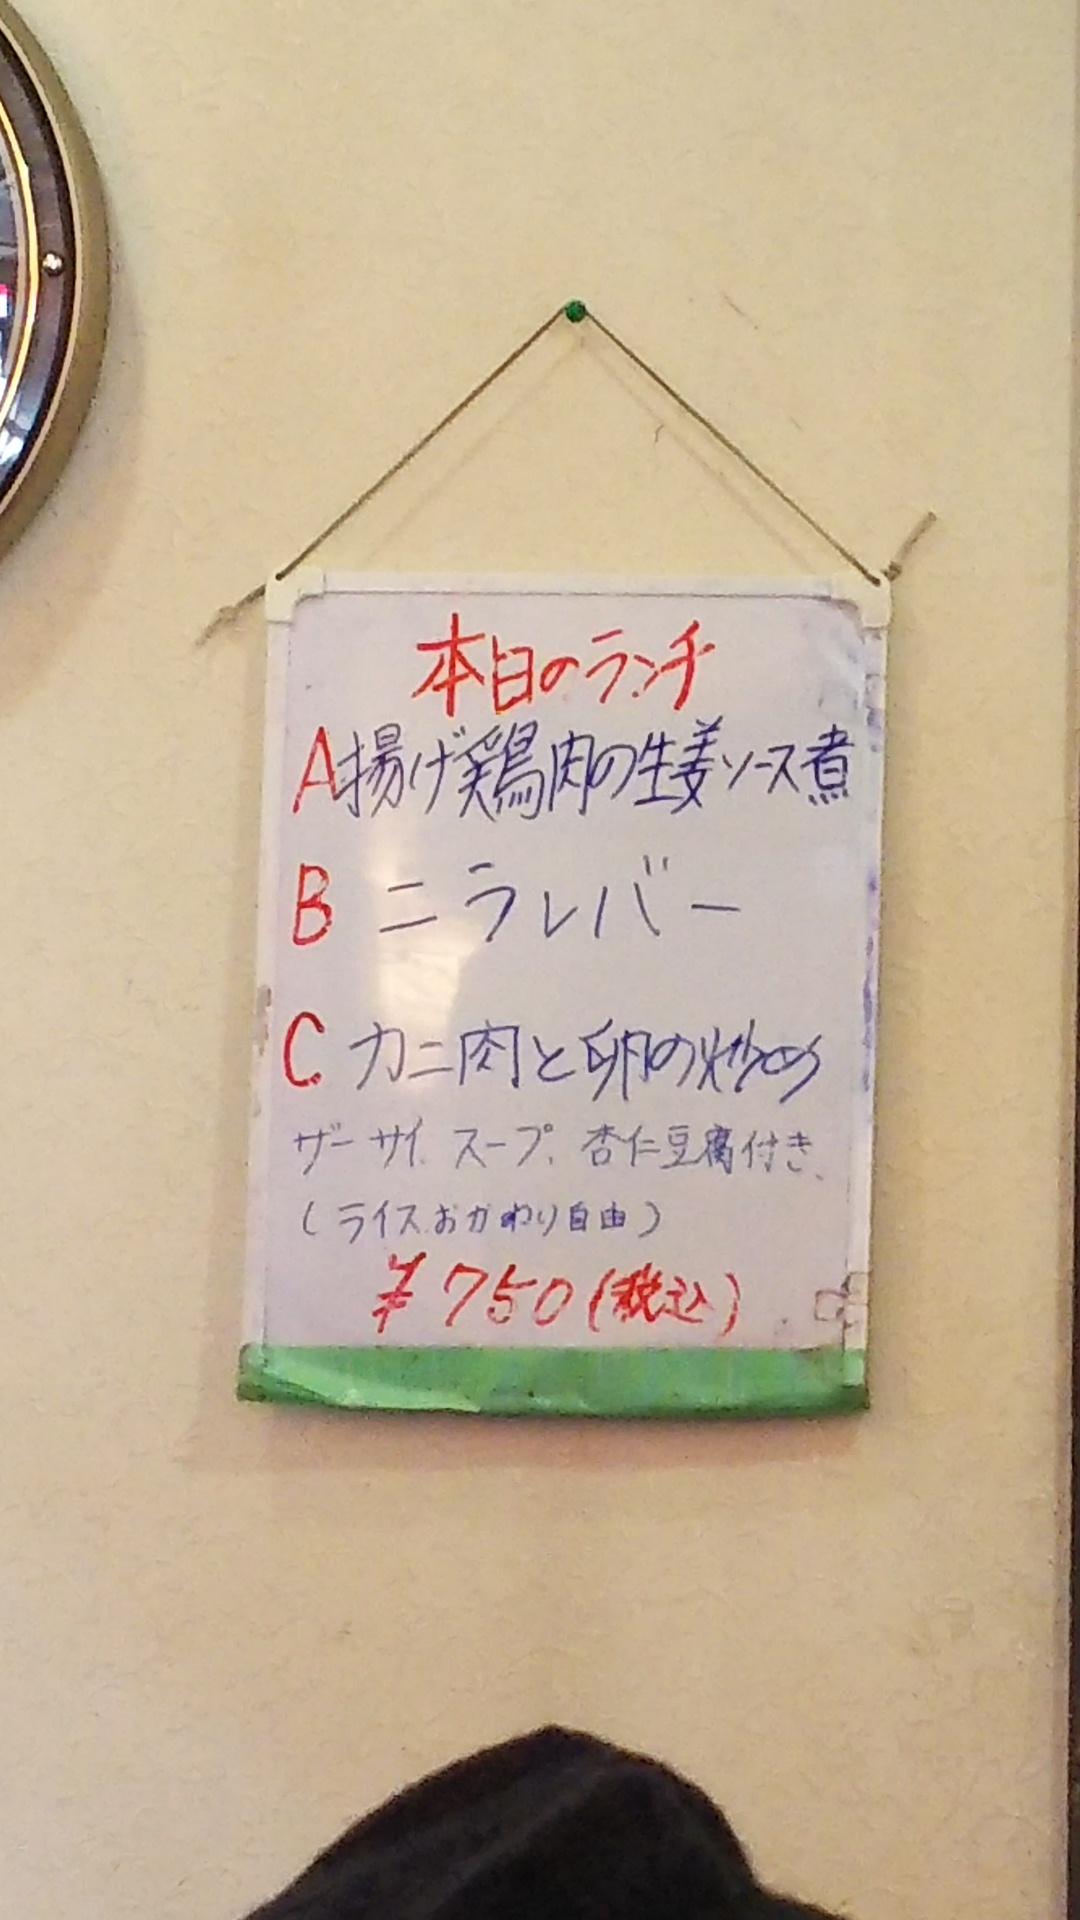 本日のランチ
A揚げ鶏肉の生姜ソース煮
B ニラレバー
C カニ肉と卵の炒め
ザーサイ、スープ、杏仁豆腐付き、
(ライスおかわり自由)
¥750(税込)